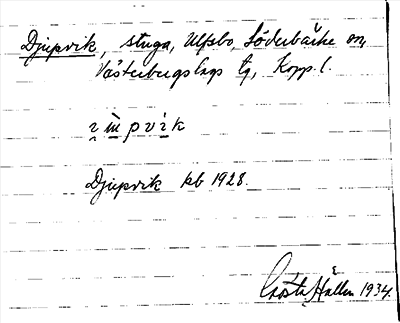 Djupvik, stuga, Ulfsbo, Söderbärke sn,
Västerbergslags tg, Kopp. l.
pvik
Djupvik kb 1928.
Gösta Hallen 1934.